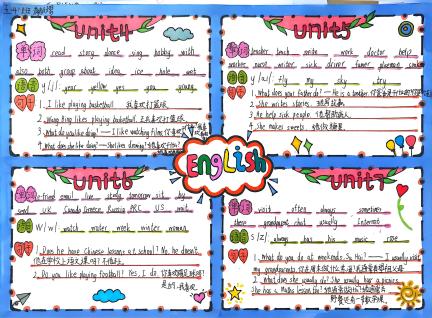 unit4
单词 read story dance sing hobby with
also both group about idea ice hole wet
语音 y /j/: year yellow yes you young
句子 1. I like playing basketball. 我喜欢打篮球
2. likes playing basketball.
3. What do you like doing? — I like watching films.
4. What does she like doing? — She likes drawing.
unit5
单词 teacher teach write work doctor help
worker nurse writer sick driver farmer
语音 y /aɪ/: fly my sky try
句子 1. What does your father do? — He is a teacher.
2. She writes stories.
3. He help sick people.
4. She makes sweets.
English
unit6
单词 e-friend email live study tomorrow sit by
send UK Canada Greece Russia PRC US wait
语音 W /w/ watch water week winter woman
句子 1. Does he have Chinese lessons at school? No, he doesn't.
他在学校上语文课吗?不他没上
2. Do you like playing football? Yes, I do. 你喜欢踢足球吗?
是的,我喜欢
unit7
单词 visit often always sometimes
there grandparent chat usually Internet
语音 S /z/: always has his music rose
句子 1. What do you do at weekends, Su Hai? — I usually visit
my grandparents.
2. What does she usually do? She usually has a picnic.
She has a Maths lesson too!